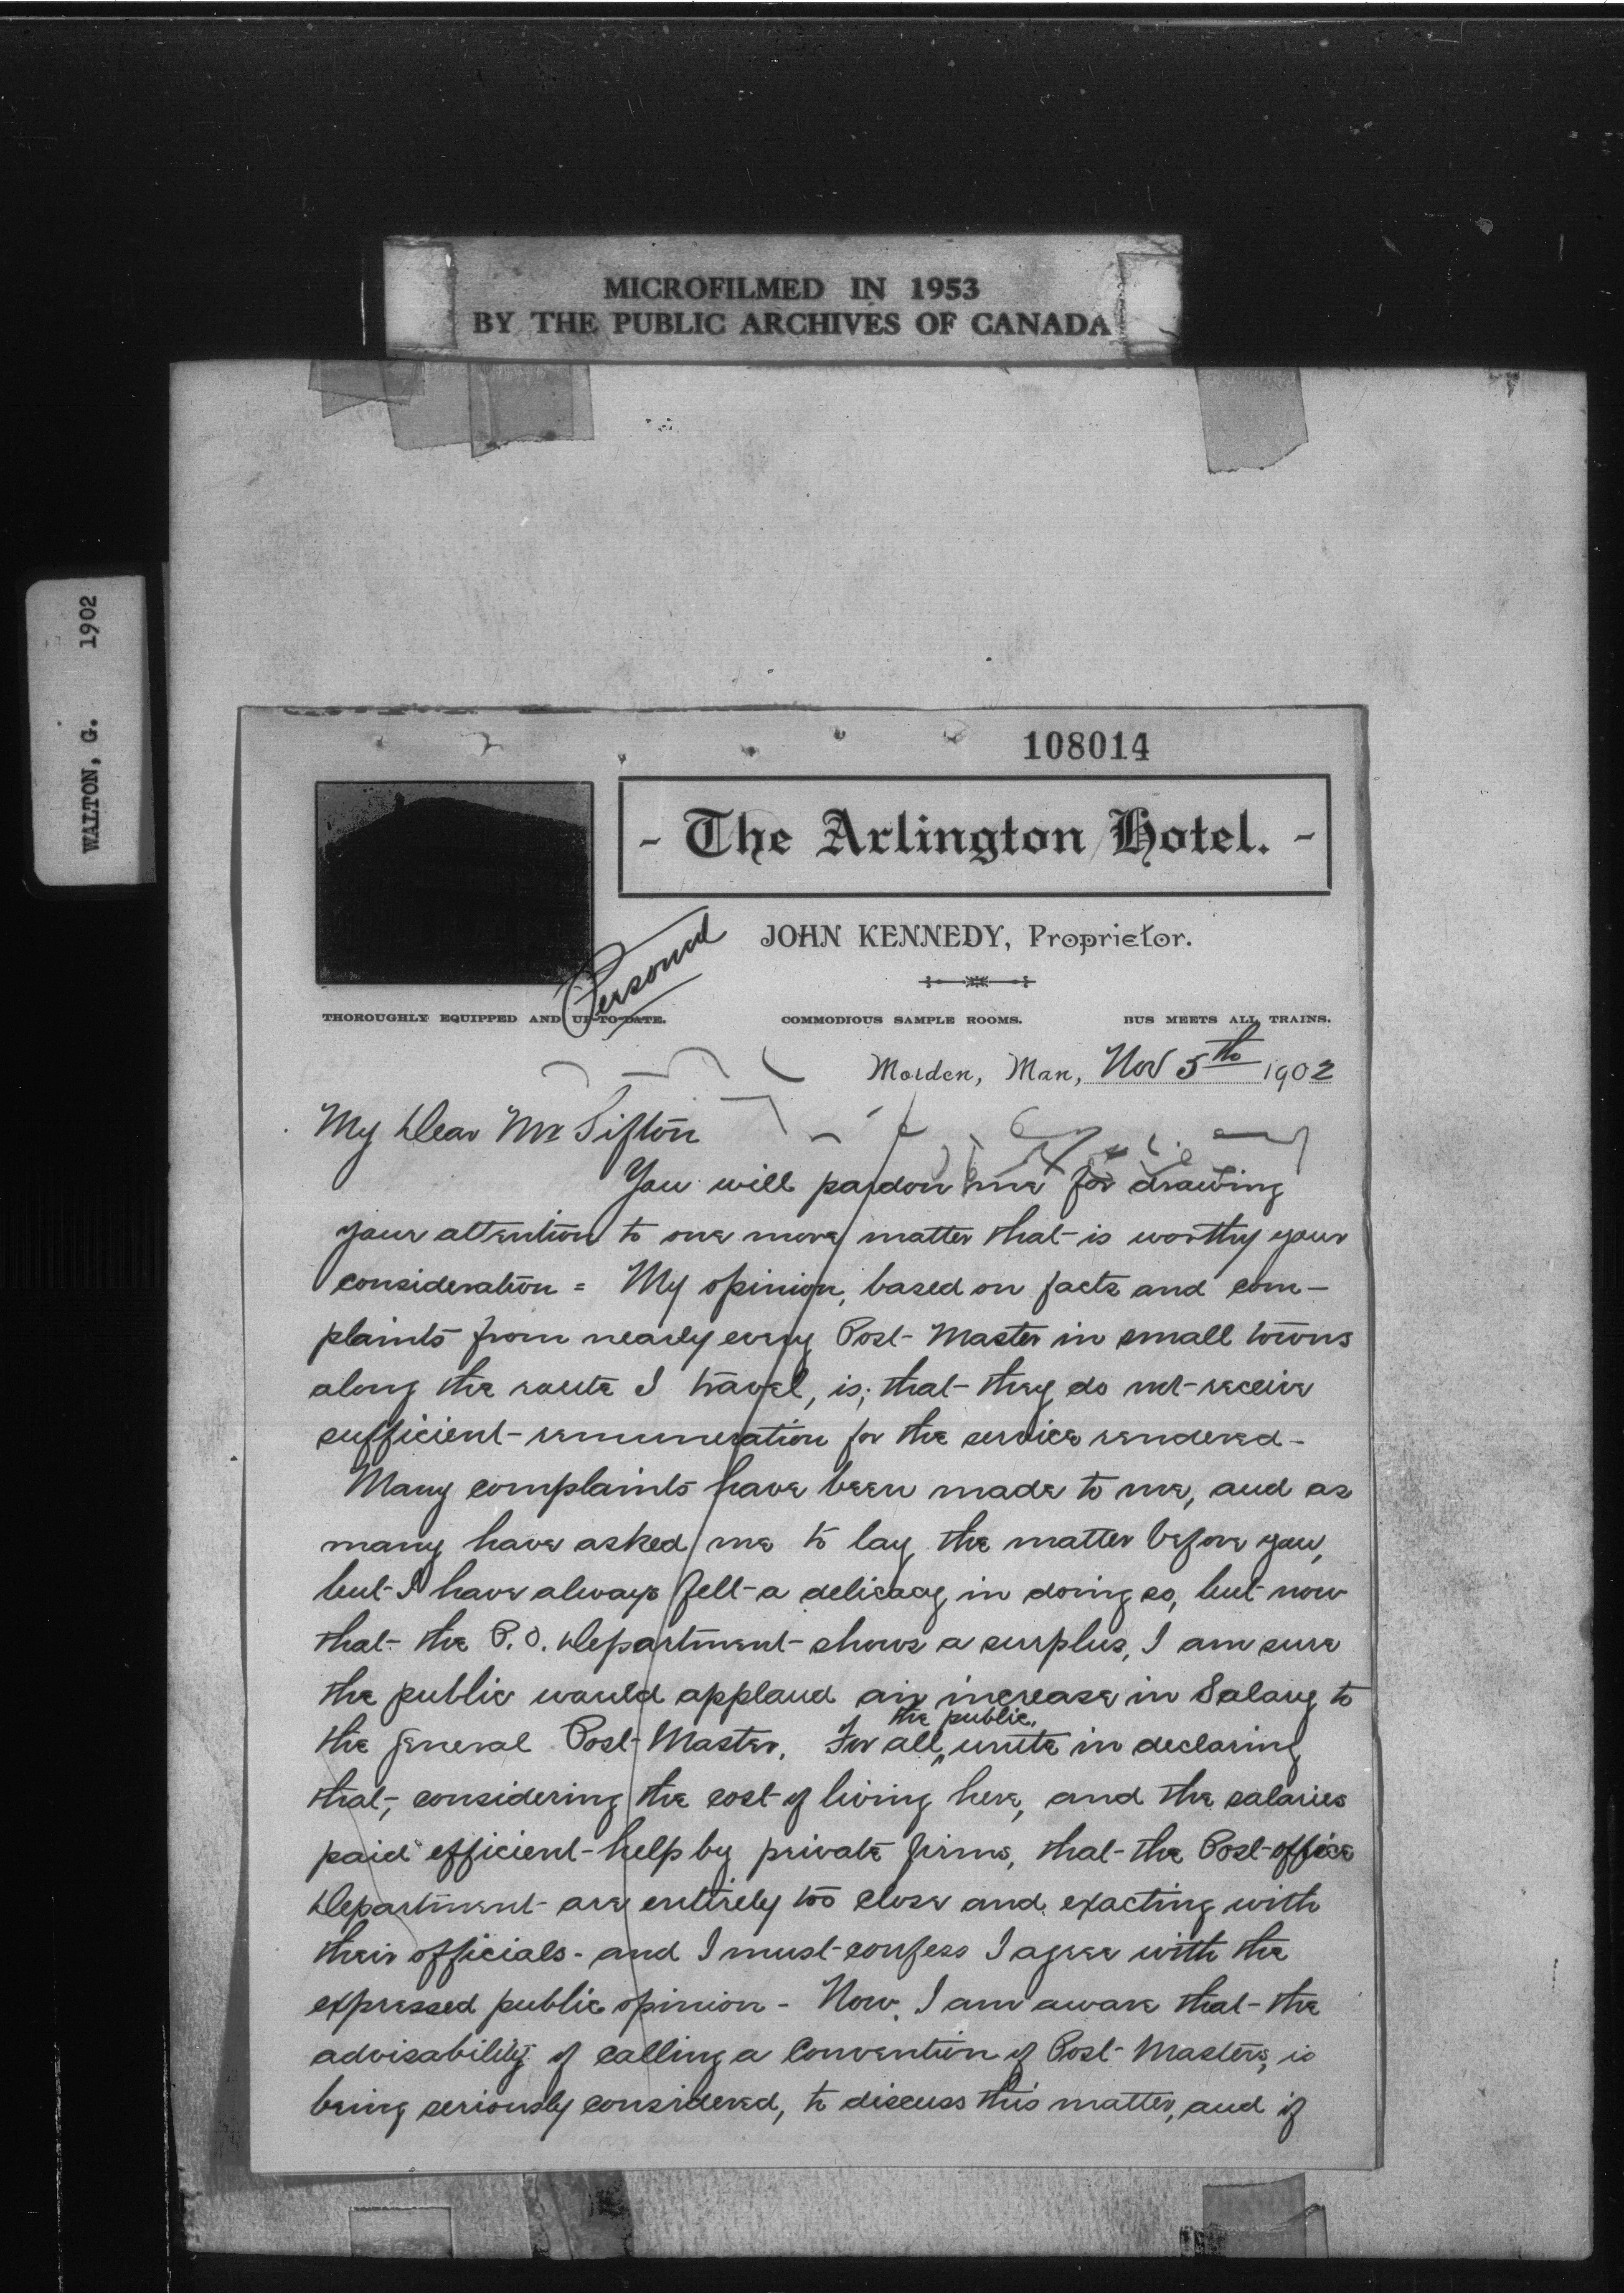 MICROFILMED IN 1953
BY THE PUBLIC ARCHIVES OF CANADA
WALTON, G. 1902
108014
- The Arlington Hotel. -
JOHN KENNEDY, Proprietor.
Personal
THOROUGHLY EQUIPPED AND UP-TO-DATE. COMMODIOUS SAMPLE ROOMS. BUS MEETS ALL TRAINS.
Morden, Man, Nov 5th 1902
My Dear Mr Sifton
You will pardon me for drawing
your attention to one more matter that is worthy your
consideration = My opinion, based on facts and com-
plaints from nearly every Post-Master in small towns
along the route I travel, is; that they do not receive
sufficient remuneration for the service rendered -
Many complaints have been made to me, and as
many have asked me to lay the matter before you,
but I have always felt a delicacy in doing so, but now
that the P.O. Department shows a surplus, I am sure
the public would applaud an increase in Salary to
the general Post-Master. For all the public, unite in declaring
that, considering the cost of living here, and the salaries
paid efficient help by private firms, that the Post-office
Department are entirely too close and exacting with
their officials - and I must confess I agree with the
expressed public opinion - Now, I am aware that the
advisability of calling a Convention of Post-Masters, is
being seriously considered, to discuss this matter, and if